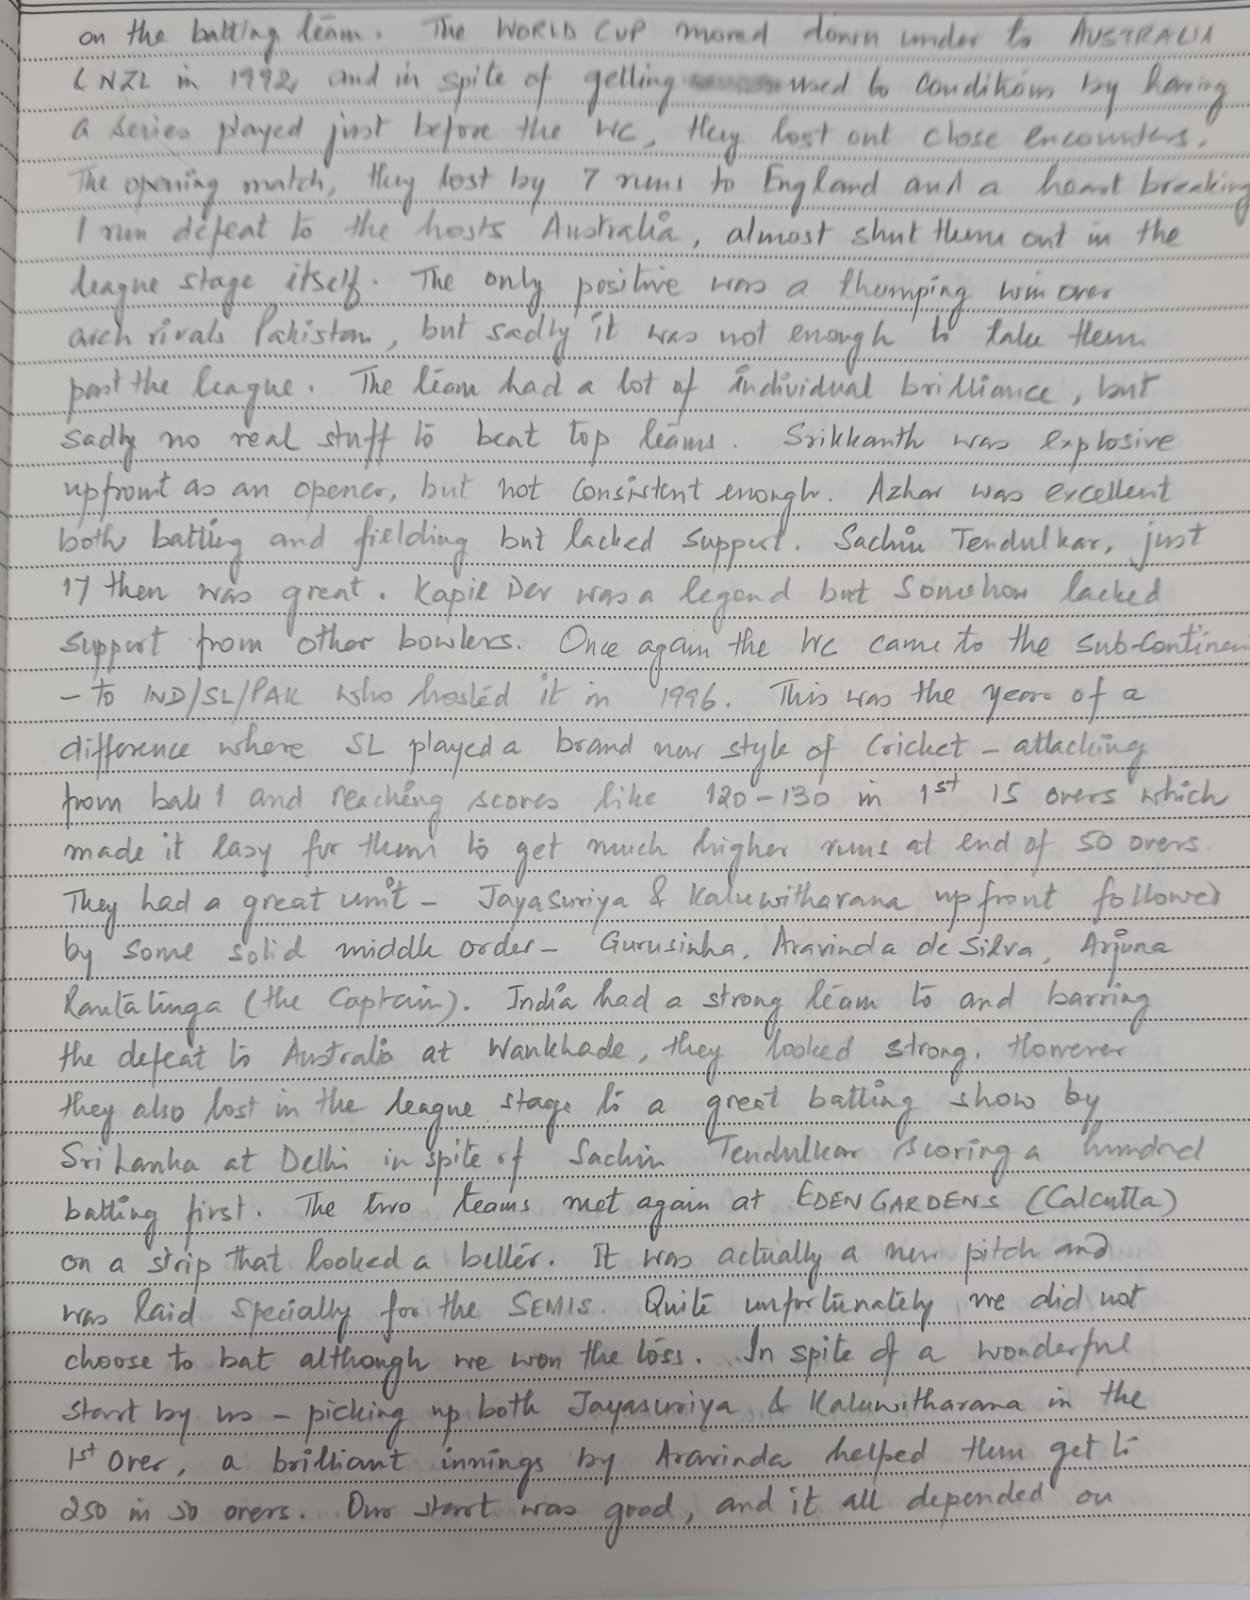 on the batting team. The WORLD CUP moved down under to AUSTRALIA
& NZL in 1992, and in spite of getting used to conditions by having
a series played just before the WC, they lost out close encounters.
The opening match, they lost by 7 runs to England and a heart breaking
1 run defeat to the hosts Australia, almost shut them out in the
league stage itself. The only positive was a thumping win over
arch rivals Pakistan, but sadly it was not enough to take them
past the league. The team had a lot of individual brilliance, but
sadly no real stuff to beat top teams. Srikkanth was explosive
upfront as an opener, but not consistent enough. Azhar was excellent
both batting and fielding but lacked support. Sachin Tendulkar, just
17 then was great. Kapil Dev was a legend but somehow lacked
support from other bowlers. Once again the WC came to the sub-continen
- to IND/SL/PAK who hosted it in 1996. This was the year of a
difference where SL played a brand new style of cricket - attacking
from ball 1 and reaching scores like 120-130 in 1st 15 overs which
made it easy for them to get much higher runs at end of 50 overs.
They had a great unit - Jayasuriya & Kaluwitharana upfront followed
by some solid middle order - Gurusinha, Aravinda de Silva, Arjuna
Ranatunga (the Captain). India had a strong team to and barring
the defeat to Australia at Wankhade, they looked strong. However
they also lost in the league stage to a great batting show by
Sri Lanka at Delhi in spite of Sachin Tendulkar scoring a hundred
batting first. The two teams met again at EDEN GARDENS (Calcutta)
on a strip that looked a better. It was actually a new pitch and
was laid specially for the SEMIS. Quite unfortunately we did not
choose to bat although we won the toss. In spite of a wonderful
start by us - picking up both Jayasuriya & Kaluwitharana in the
1st over, a brilliant innings by Aravinda helped them get to
250 in 50 overs. Our start was good, and it all depended on